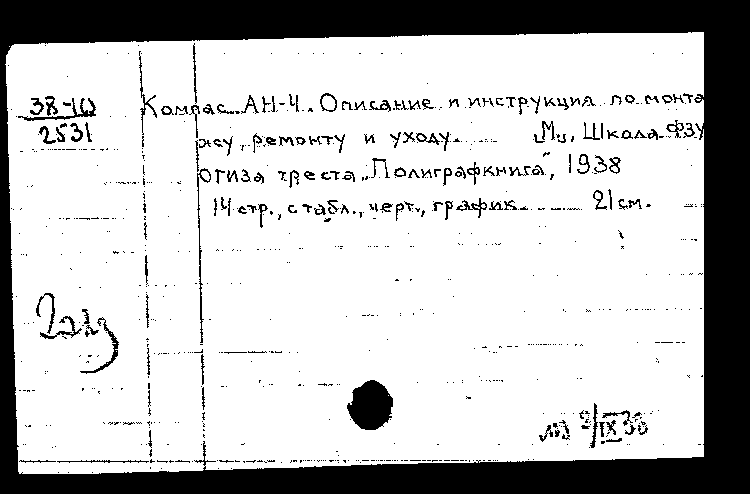 38-10
2531
Компас АН-4. Описание и инструкция по монта
жу, ремонту и уходу. М., Школа ФЗУ
Огиза треста „Полиграфкнига“, 1938
14 стр., с табл., черт., график. 21 см.
2/IX 38